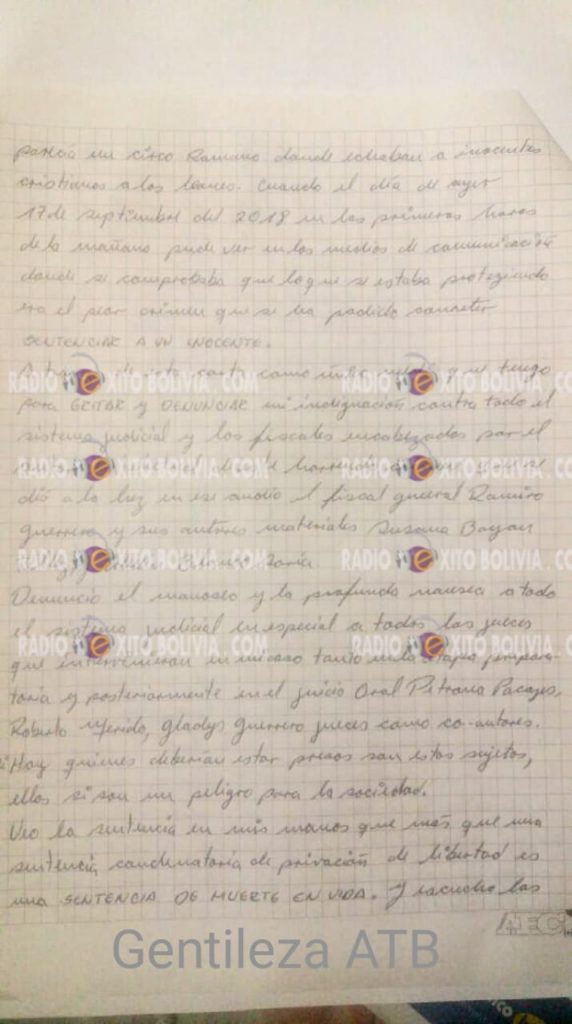 parecía un circo Romano donde echaban a inocentes
cristianos a los leones. Cuando el día de ayer
17 de septiembre del 2018 en las primeras horas
de la mañana pude ver en los medios de comunicación
donde se comprobaba que lo que se estaba protegiendo
era el peor crimen que se ha podido cometer
SENTENCIAR A UN INOCENTE.
de esta carta como que tengo
para GRITAR y DENUNCIAR mi indignación contra todo el
sistema judicial y los fiscales encabezados por el
que se
dió a la luz en ese audio el fiscal general Ramiro
guerrero y sus autores materiales Susana Boyan
Denuncio el manoseo y la profunda nausea a todo
el sistema judicial en especial a todos los jueces
que intervinieron en mi caso tanto en la etapa prepara-
toria y posteriormente en el juicio Oral Petrona Pacajes,
Roberto Mérida, Gladys Guerrero jueces como co-autores.
Hoy quienes deberían estar presos son estos sujetos,
ellos si son un peligro para la sociedad.
Veo la sentencia en mis manos que más que una
sentencia condenatoria de privación de libertad es
una SENTENCIA DE MUERTE EN VIDA. Y escucho las
RADIO EXITO BOLIVIA . COM RADIO EXITO BOLIVIA . COM
RADIO EXITO BOLIVIA . COM RADIO EXITO BOLIVIA . COM
RADIO EXITO BOLIVIA . COM RADIO EXITO BOLIVIA . COM
RADIO EXITO BOLIVIA . COM RADIO EXITO BOLIVIA . COM
Gentileza ATB